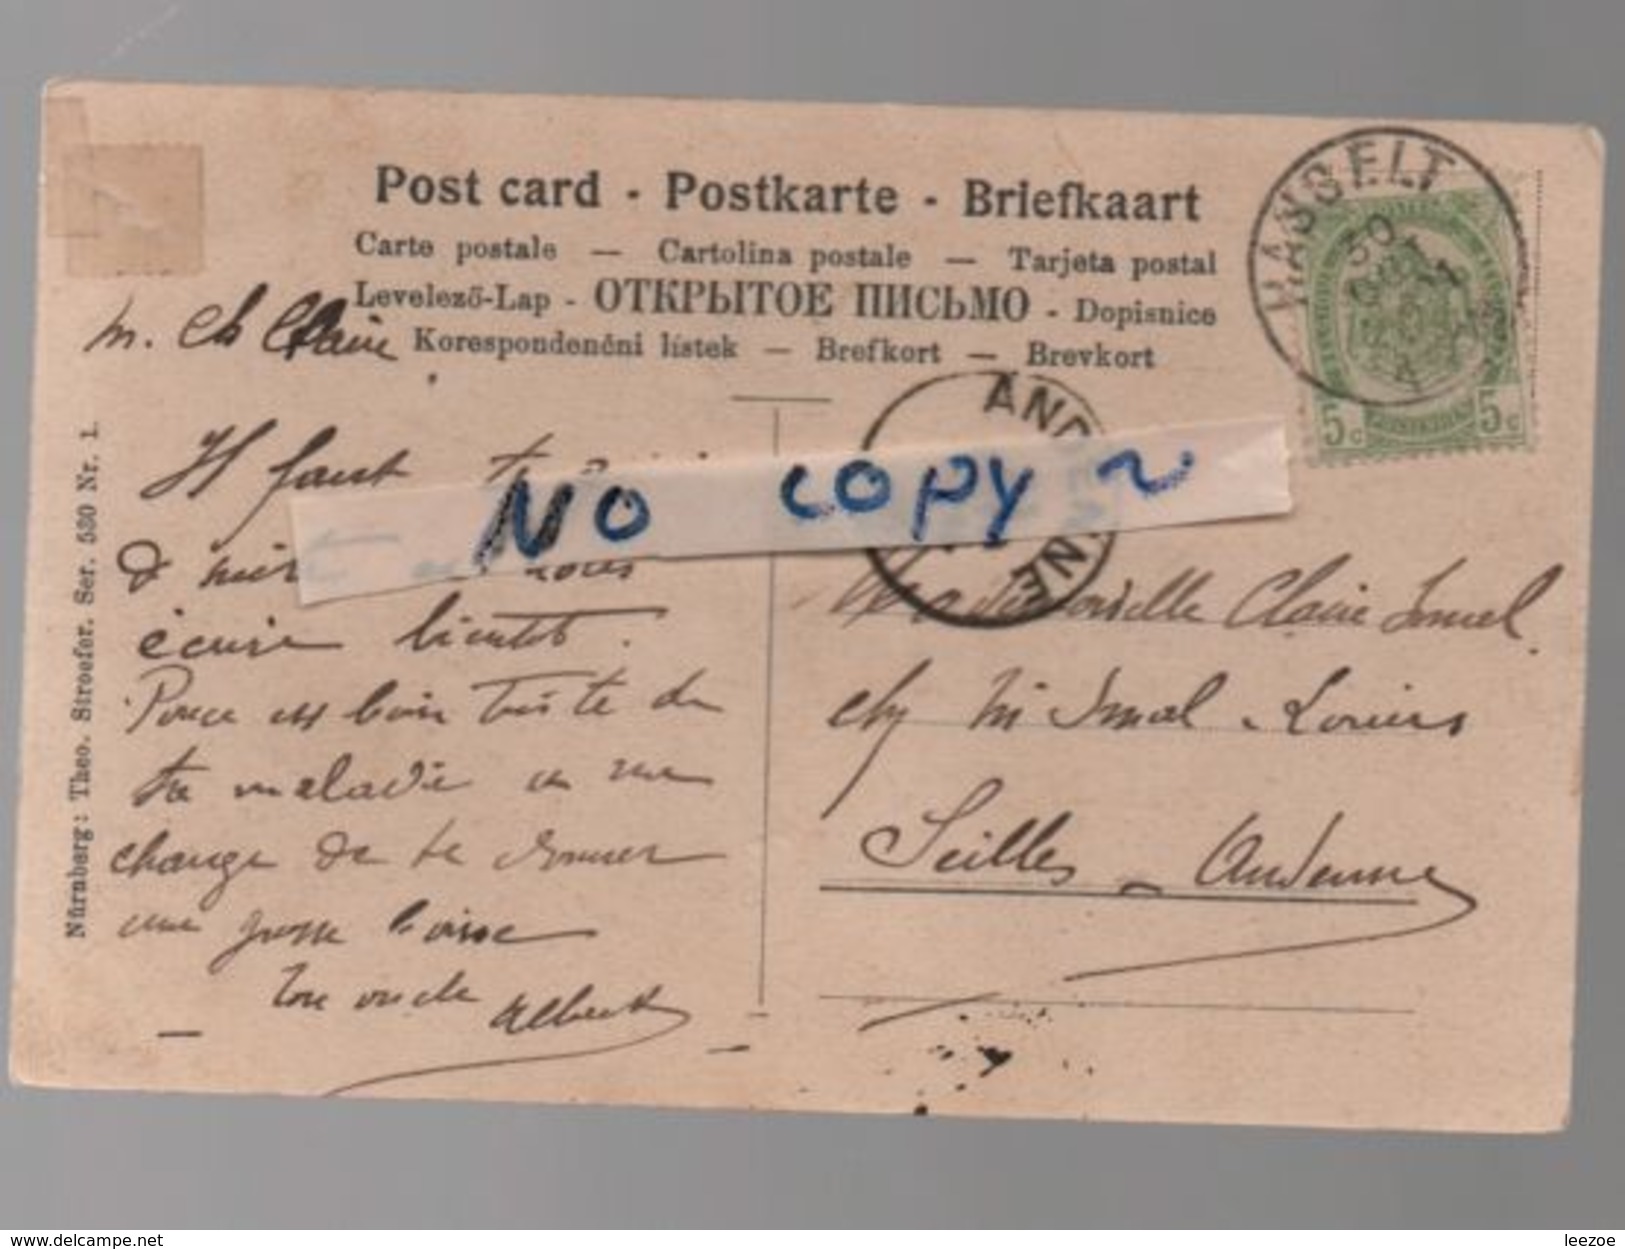 Post card - Postkarte - Briefkaart
Carte postale — Cartolina postale — Tarjeta postal
Levelező-Lap - ОТКРЫТОЕ ПИСЬМО - Dopisnice
Korespondenční lístek — Brefkort — Brevkort
HASSELT
30
5c 5c
ANDENNE
m. Ch Claire
Il faut
NO copy
écrire bientôt.
est bien triste de
ta maladie
change de te donner
une grosse
Ton oncle Albert
Mademoiselle Claire
chez
Seilles - Andenne
Nürnberg: Theo. Stroefer. Ser. 530 Nr. 1.
www.delcampe.net
leezoe